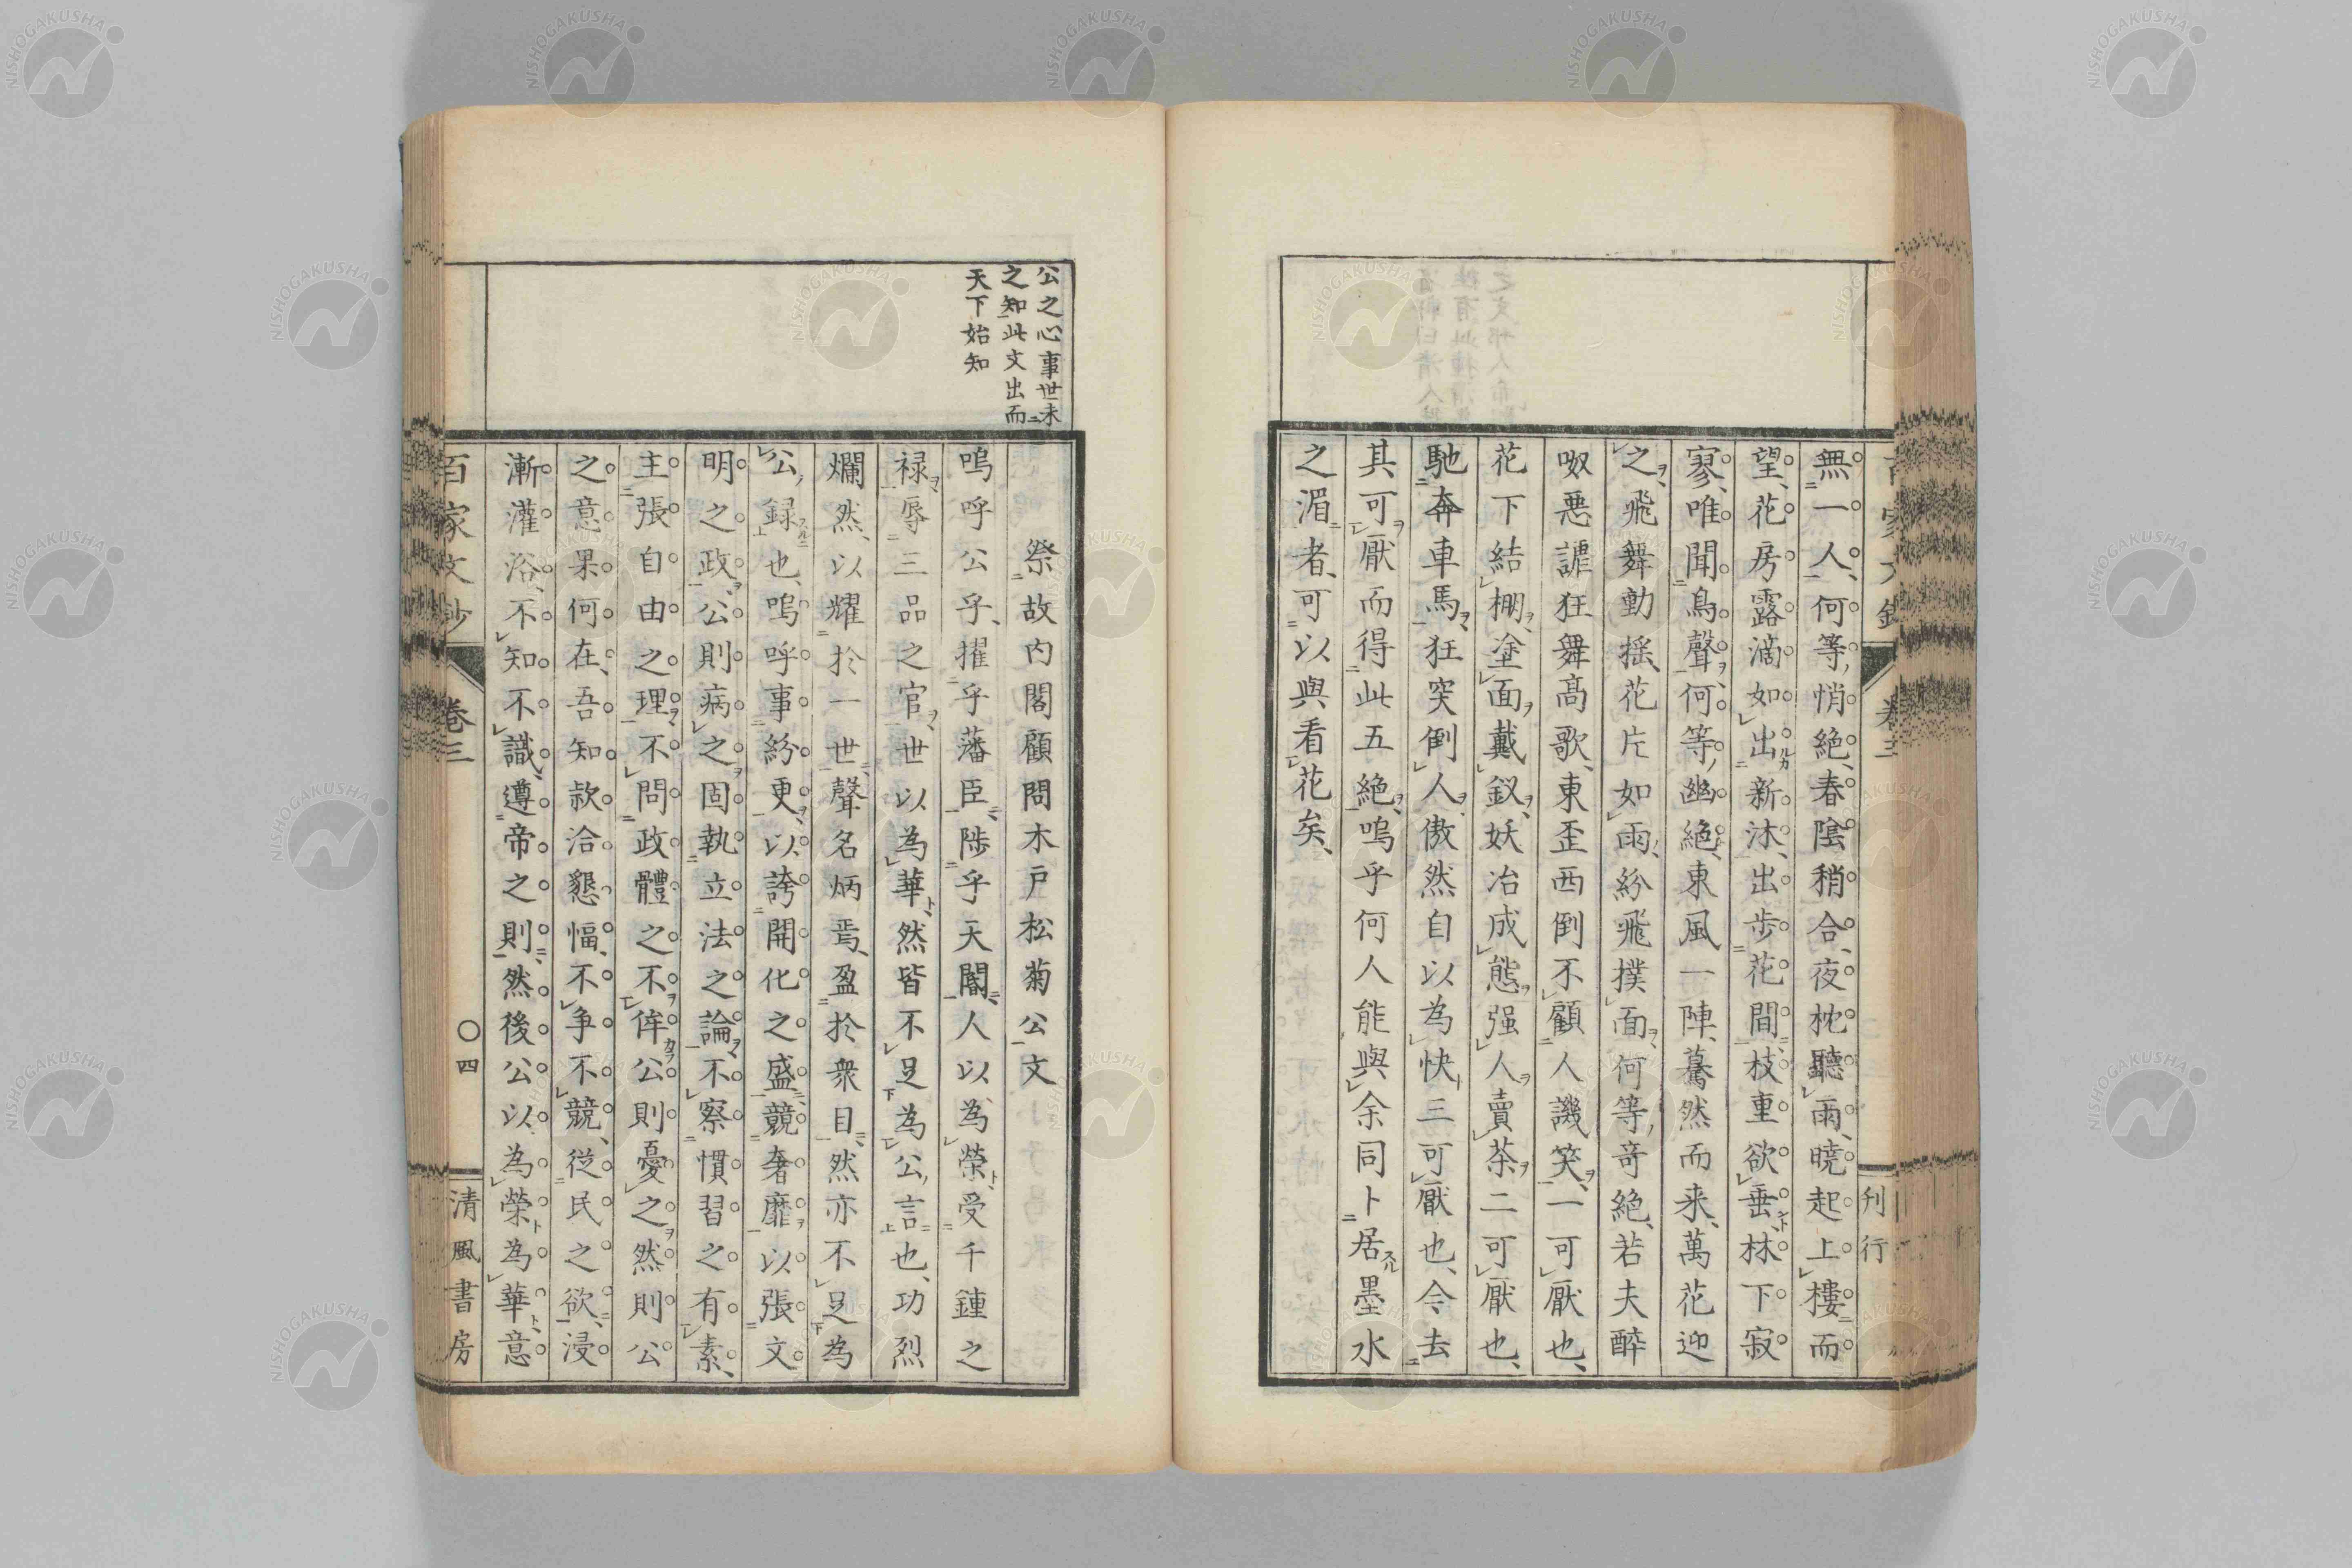 無一人、何等悄絶、春陰稍合、夜枕聽雨、曉起上樓而
望、花房露滴如出新沐、出步花間、枝重欲垂、林下寂
寥、唯聞鳥聲、何等幽絶、東風一陣、驀然而来、萬花迎
之、飛舞動搖、花片如雨、紛飛撲面、何等奇絶、若夫醉
呶惡謔狂舞高歌、東歪西倒不顧人譏笑、一可厭也、
花下結棚、塗面戴釵、妖冶成態、强人賣茶、二可厭也、
馳奔車馬、狂突倒人、傲然自以為快、三可厭也、今去
其可厭而得此五絶、嗚乎何人能與余同卜居墨水
之湄者、可以與看花矣、
刊行
公之心事世未
之知此文出而
天下始知
祭故内閣顧問木戸松菊公文
嗚呼公乎、擢乎藩臣、陟乎天閽、人以為榮、受千鍾之
禄、辱三品之官、世以為華、然皆不足為公言也、功烈
爛然、以耀於一世、聲名炳焉、盈於衆目、然亦不足為
公録也、嗚呼事紛更、以誇開化之盛、競奢靡、以張文
明之政、公則病之、固執立法之論、不察慣習之有素、
主張自由之理、不問政體之不侔、公則憂之、然則公
之意果何在、吾知款洽懇愊、不争不競、従民之欲、浸
漸灌浴、不知不識、遵帝之則、然後公以為榮為華、意
百家文鈔
卷三
〇四
清風書房
NISHOGAKUSHA